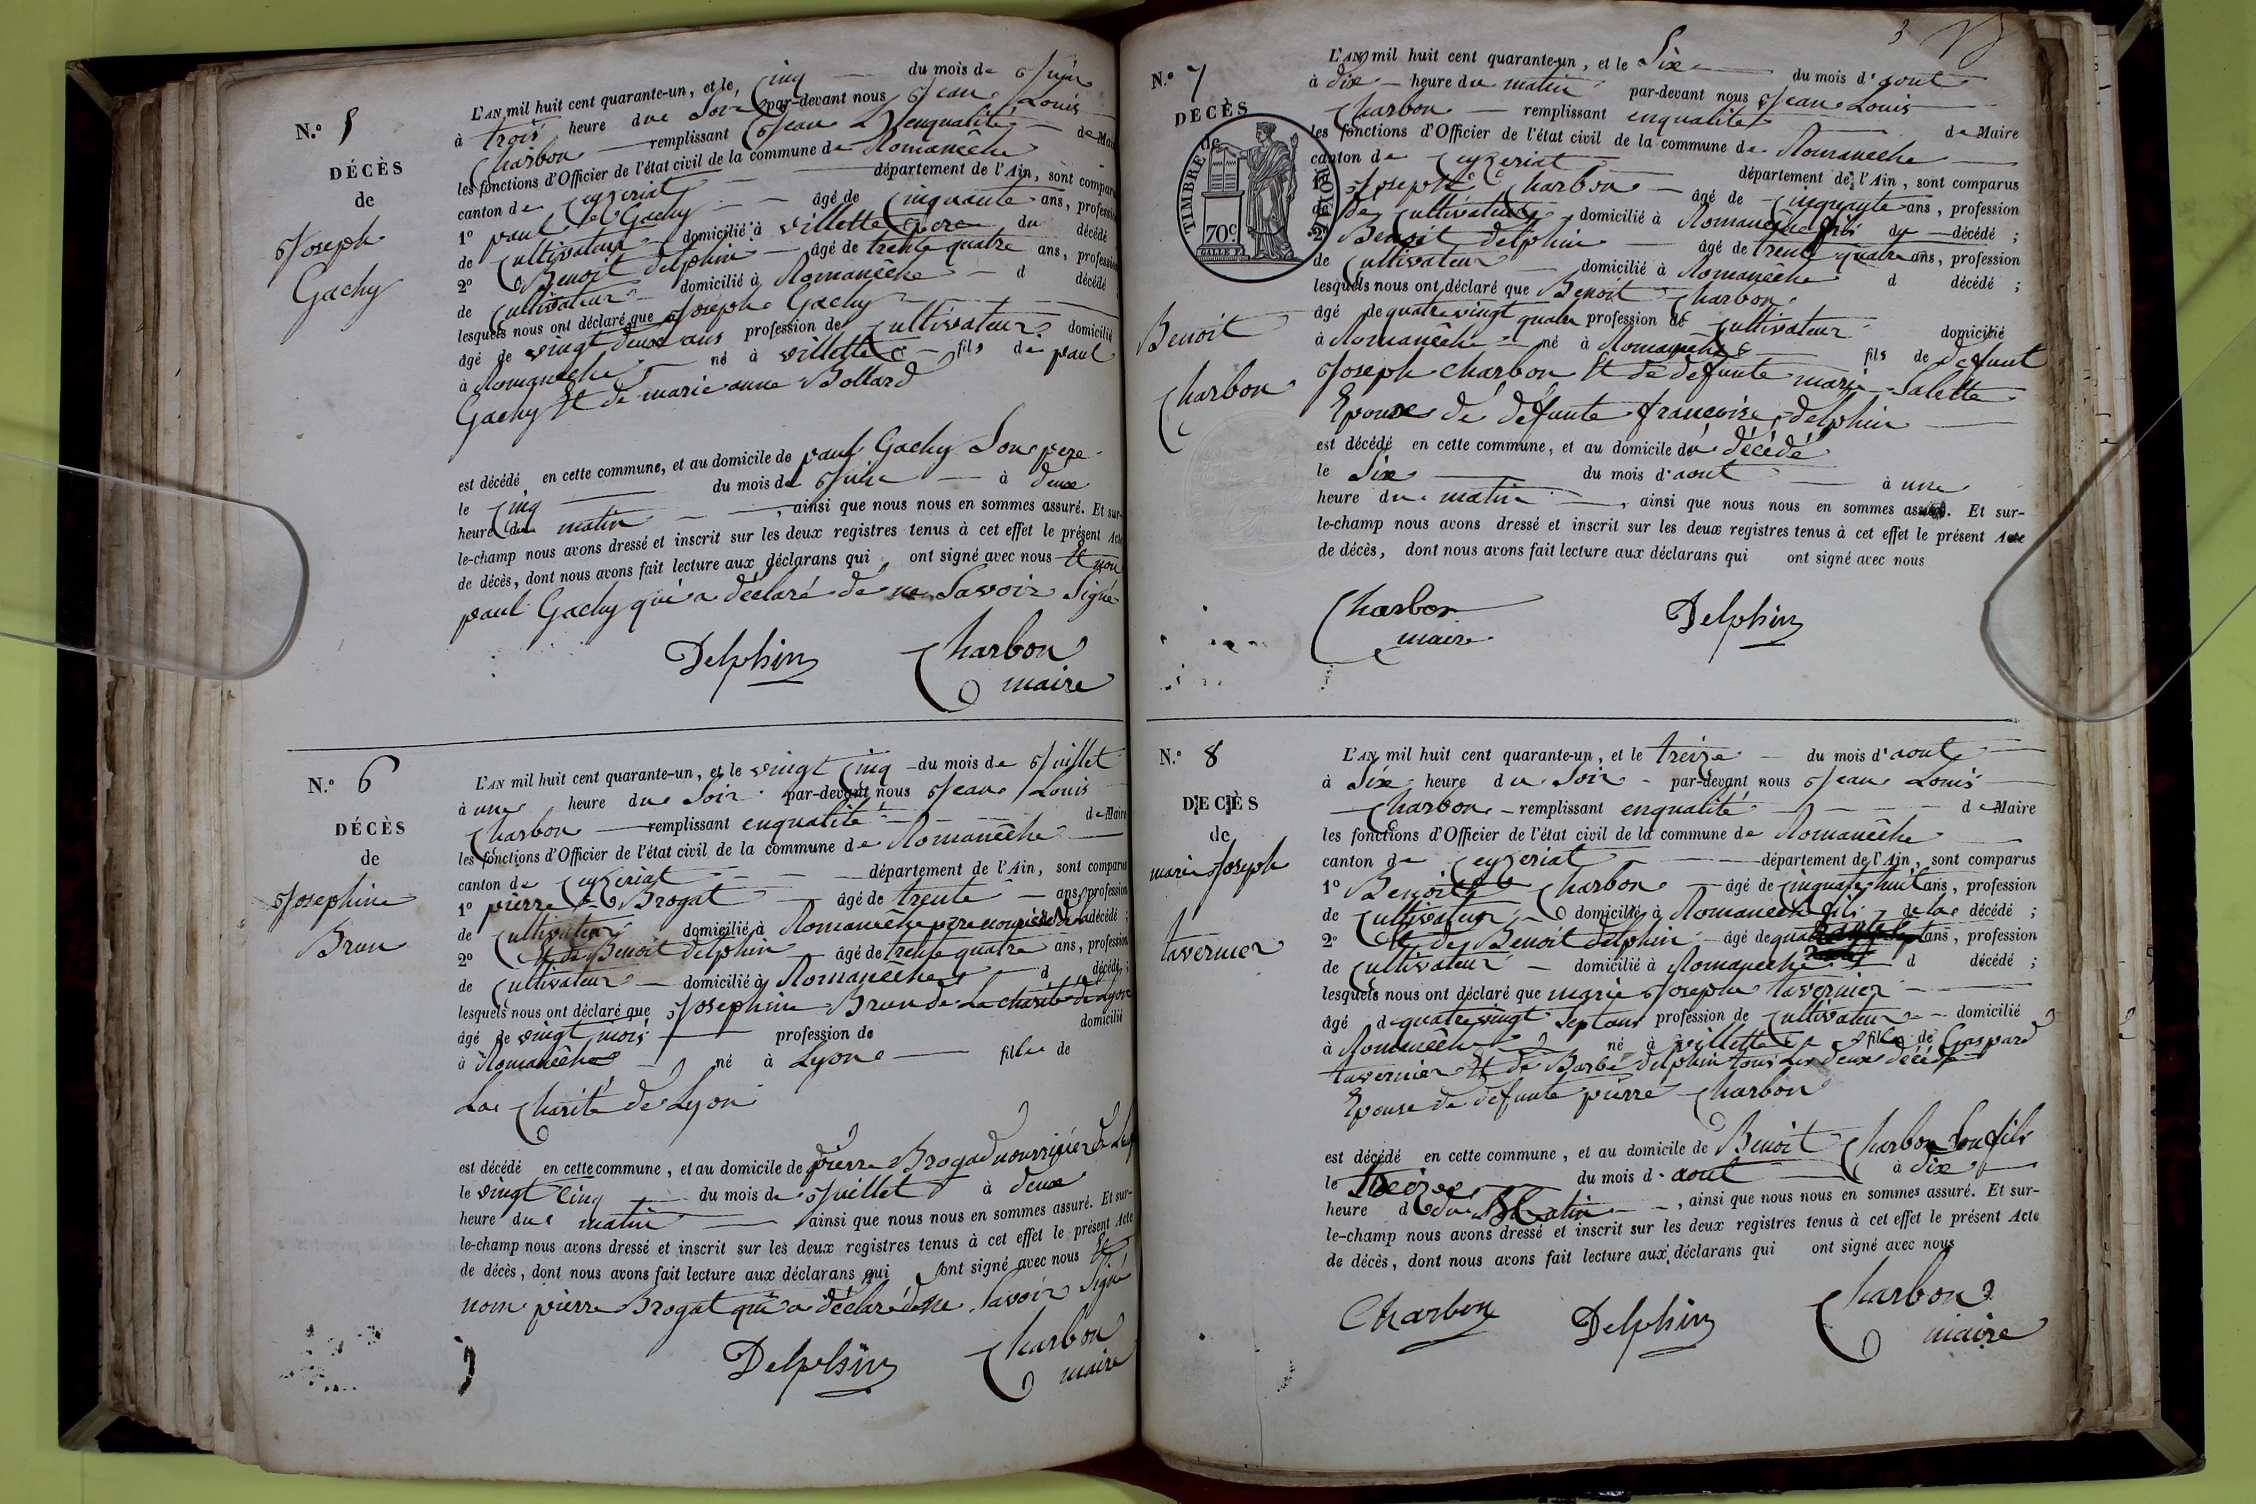 N.° 5
DÉCÈS
de
Joseph
Gachy
L'AN mil huit cent quarante-un, et le, Cinq du mois de Juin
à trois heure du Soir par-devant nous Jean Louis
Charbon remplissant enqualité de Maire
les fonctions d'Officier de l'état civil de la commune de Romanêche
canton de Ceyzeriat département de l'Ain, sont comparus
1° paul Gachy âgé de Cinquante ans, profession
de Cultivateur domicilié à villette père du décédé
2° Benoit delphin âgé de trente quatre ans, profession
de Cultivateur domicilié à Romanêche d décédé
lesquels nous ont déclaré que Joseph Gachy
âgé de vingt deux ans profession de Cultivateur domicilié
à Romanêche né à villette fils de paul
Gachy Et de marie anne Bottard
est décédé en cette commune, et au domicile de paul Gachy Son pere
le Cinq du mois de à deux
heure du matin, ainsi que nous nous en sommes assuré. Et sur-
le-champ nous avons dressé et inscrit sur les deux registres tenus à cet effet le présent Acte
de décès, dont nous avons fait lecture aux déclarans qui ont signé avec nous Et non
paul Gachy qui a déclaré de ne Savoir Signé
Delphin Charbon
maire
N.° 6
DÉCÈS
de
Josephine
Brun
L'AN mil huit cent quarante-un, et le vingt Cinq du mois de Juillet
à une heure du Soir par-devant nous Jean Louis
Charbon remplissant enqualité de Maire
les fonctions d'Officier de l'état civil de la commune de Romanêche
canton de Ceyzeriat département de l'Ain, sont comparus
1° pierre Brogat âgé de trente ans, profession
de Cultivateur domicilié à Romanêche père nouricier de la décédé ;
2° Et de Benoit delphin âgé de trente quatre ans, profession
de Cultivateur domicilié à Romanêche d décédé ;
lesquels nous ont déclaré que Josephine Brun de La charité de Lyon
âgé de vingt mois profession de domicilié
à Romanêche né à Lyon fille de
La Charité de Lyon
est décédé en cette commune, et au domicile de pierre Brogad nourricier de
le vingt Cinq du mois de Juillet à deux
heure du matin ainsi que nous nous en sommes assuré. Et sur-
le-champ nous avons dressé et inscrit sur les deux registres tenus à cet effet le présent Acte
de décès, dont nous avons fait lecture aux déclarans qui ont signé avec nous Et
nom pierre Brogat qui a déclaré de ne Savoir Signé
Delphin Charbon
maire
3
N.° 7
DÉCÈS
de
TIMBRE ROYAL
70c
Benoit
Charbon
L'AN mil huit cent quarante-un, et le Six du mois d'aout
à dix heure du matin par-devant nous Jean Louis
Charbon remplissant enqualité de Maire
les fonctions d'Officier de l'état civil de la commune de Romanêche
canton de Ceyzeriat département de l'Ain, sont comparus
1° Joseph Charbon âgé de Cinquante ans, profession
de de Cultivateur domicilié à Romanêche fils du décédé ;
2° Benoit delphin âgé de trente quatre ans, profession
de Cultivateur domicilié à Romanêche d décédé ;
lesquels nous ont déclaré que Benoit Charbon
âgé de quatre vingt quatre profession de Cultivateur domicilié
à Romanêche né à Romanêche fils de defunt
Joseph Charbon Et de defunte marie Salette
Epoux de défunte françoise delphin
est décédé en cette commune, et au domicile du décédé
le Six du mois d'aout à une
heure du matin, ainsi que nous nous en sommes assuré. Et sur-
le-champ nous avons dressé et inscrit sur les deux registres tenus à cet effet le présent Acte
de décès, dont nous avons fait lecture aux déclarans qui ont signé avec nous
Charbon Delphin
maire
N.° 8
DÉCÈS
de
marie Joseph
tavernier
L'AN mil huit cent quarante-un, et le treize du mois d'aout
à Six heure du Soir par-devant nous Jean Louis
Charbon remplissant enqualité de Maire
les fonctions d'Officier de l'état civil de la commune de Romanêche
canton de Ceyzeriat département de l'Ain, sont comparus
1° Benoit Charbon âgé de Cinquante huit ans, profession
de Cultivateur domicilié à Romanêche fils de la décédé ;
2° Et de Benoit delphin âgé de ans, profession
de Cultivateur domicilié à Romanêche d décédé ;
lesquels nous ont déclaré que marie Joseph tavernier
âgé de quatre vingt Sept ans profession de Cultivateur domicilié
à Romanêche né à villette fille de Gaspard
tavernier Et de Barbe delphin tous Les deux décédé
Epouse de defunte pierre Charbon
est décédé en cette commune, et au domicile de Benoit Charbon Son fils
le treize du mois d'aout à dix
heure d du Matin, ainsi que nous nous en sommes assuré. Et sur-
le-champ nous avons dressé et inscrit sur les deux registres tenus à cet effet le présent Acte
de décès, dont nous avons fait lecture aux déclarans qui ont signé avec nous
Charbon Delphin Charbon
maire